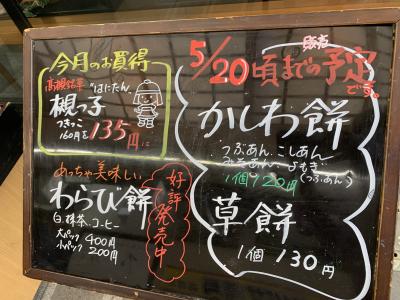 今月のお買得
高槻銘菓"はにたん"
槻っ子
つきっこ
160円を135円に
めっちゃ美味しい
わらび餅
白、抹茶、コーヒー
大パック 400円
小パック 200円
好評発売中
5/20頃までの販売予定です。
かしわ餅
つぶあん、こしあん、
みそあん、よもぎ
1個120円(つぶあん)
草餅
1個130円